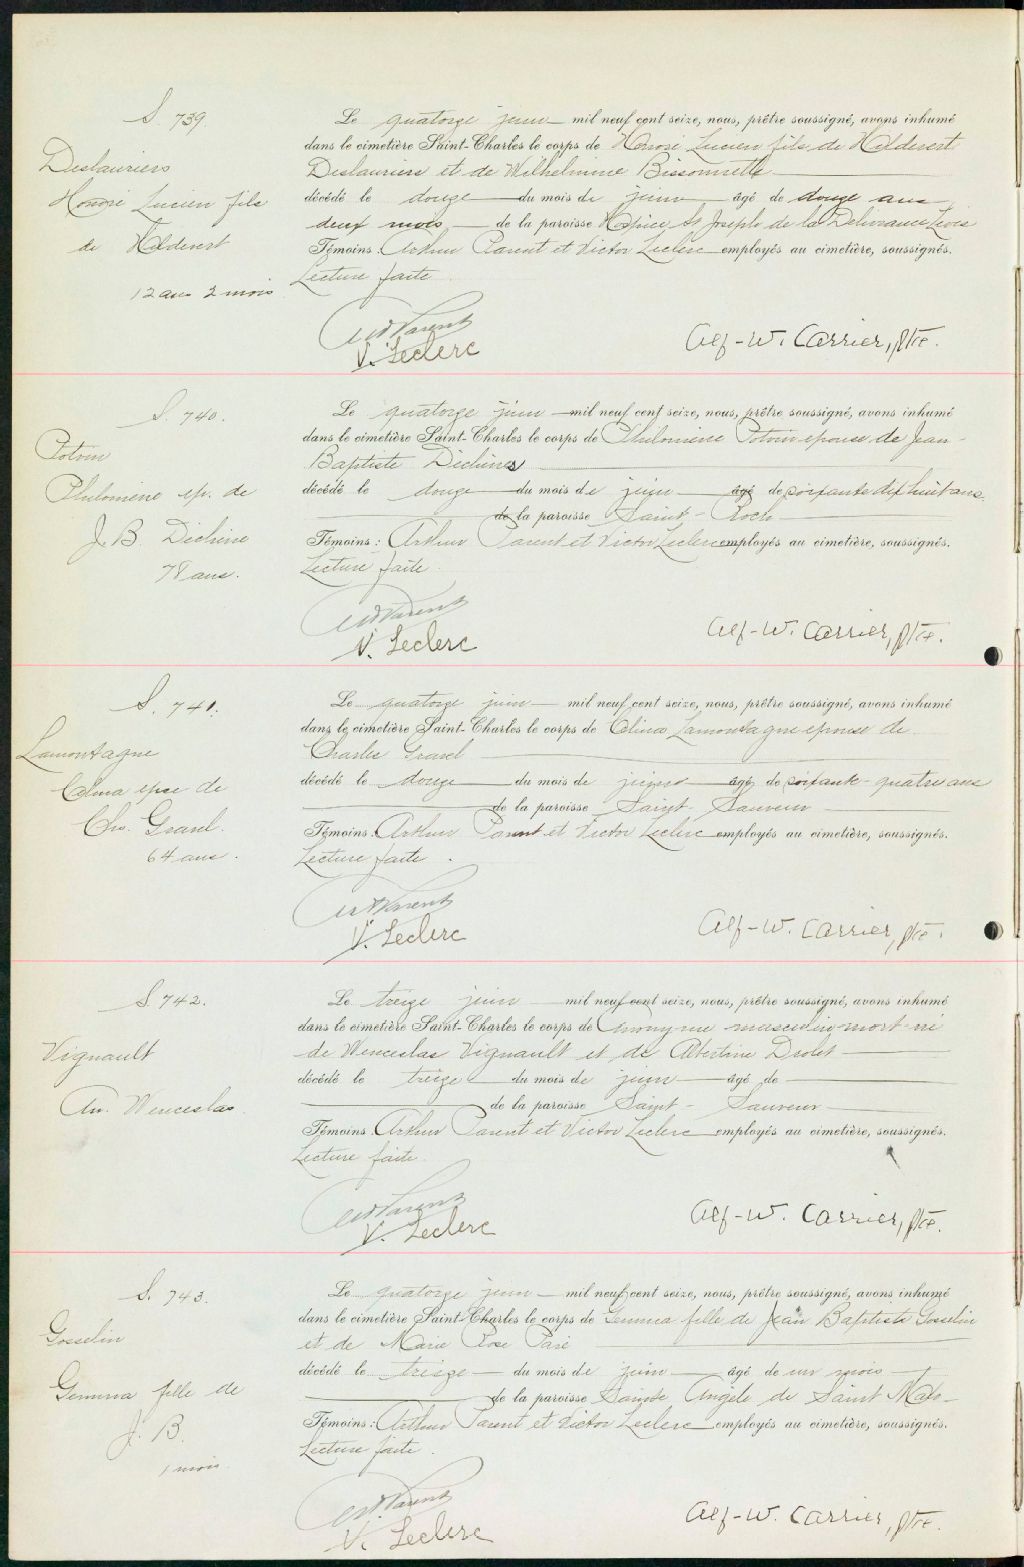 S. 739.
Deslauriers
Honoré Lucien fils
de Hildevert
12 ans 2 mois
Le quatorze juin mil neuf cent seize, nous, prêtre soussigné, avons inhumé
dans le cimetière Saint-Charles le corps de Honoré Lucien fils de Hildevert
Deslauriers et de Wilhelmine Bissonnette
décédé le douze du mois de juin âgé de douze ans
deux mois de la paroisse Hospice St Joseph de la Délivrance Levis
Témoins: Arthur Parent et Victor Leclerc employés au cimetière, soussignés.
Lecture faite
Art Parent
V. Leclerc
Alf-W. Carrier, ptre.
S. 740.
Potvin
Philomène ep. de
J. B. Dechêne
78 ans.
Le quatorze juin mil neuf cent seize, nous, prêtre soussigné, avons inhumé
dans le cimetière Saint-Charles le corps de Philomène Potvin épouse de Jean-
Baptiste Dechênes
décédé le douze du mois de juin âgé de soixante dix huit ans
de la paroisse Saint-Roch
Témoins: Arthur Parent et Victor Leclerc employés au cimetière, soussignés.
Lecture faite.
Art Parent
V. Leclerc
Alf-W. Carrier, ptre.
S. 741.
Lamontagne
Célina epse de
Chs. Gravel.
64 ans.
Le quatorze juin mil neuf cent seize, nous, prêtre soussigné, avons inhumé
dans le cimetière Saint-Charles le corps de Célina Lamontagne épouse de
Charles Gravel
décédé le douze du mois de juin âgé de soixante-quatre ans
de la paroisse Saint-Sauveur
Témoins: Arthur Parent et Victor Leclerc employés au cimetière, soussignés.
Lecture faite.
Art Parent
V. Leclerc
Alf-W. Carrier, ptre.
S. 742.
Vignault
An. Wenceslas
Le treize juin mil neuf cent seize, nous, prêtre soussigné, avons inhumé
dans le cimetière Saint-Charles le corps de Anonyme masculin mort-né
de Wenceslas Vignault et de Albertine Drolet
décédé le treize du mois de juin âgé de
de la paroisse Saint-Sauveur
Témoins: Arthur Parent et Victor Leclerc employés au cimetière, soussignés.
Lecture faite.
Art Parent
V. Leclerc
Alf-W. Carrier, ptre.
S. 743.
Gosselin
Gemma fille de
J. B.
1 mois
Le quatorze juin mil neuf cent seize, nous, prêtre soussigné, avons inhumé
dans le cimetière Saint-Charles le corps de Gemma fille de Jean Baptiste Gosselin
et de Marie Rose Paré
décédé le treize du mois de juin âgé de un mois
de la paroisse Sainte Angèle de Saint Malo
Témoins: Arthur Parent et Victor Leclerc employés au cimetière, soussignés.
Lecture faite.
Art Parent
V. Leclerc
Alf-W. Carrier, ptre.